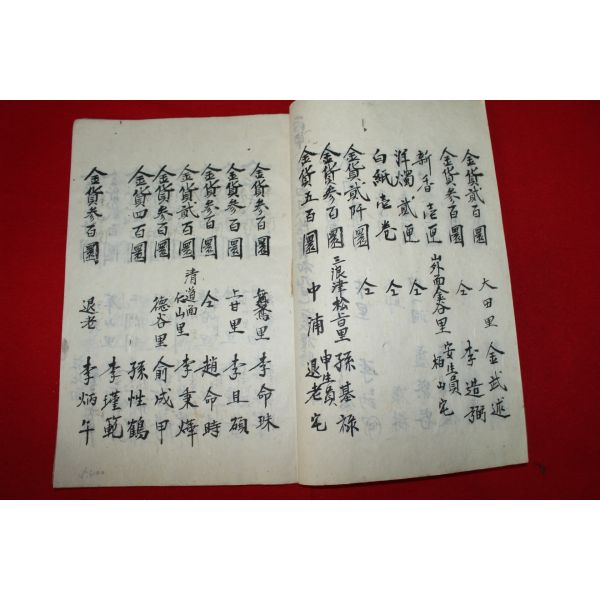 金貨貳百圜 大田里 金武述
金貨參百圜 仝 李造弼
新香壹匣 山外面金谷里 安生員 柏山宅
洋燭貳匣 仝
白紙壹卷 仝
金貨貳阡圜 三浪津松旨里 孫基祿
金貨參百圜 申生員
金貨五百圜 中浦 退老宅
金貨參百圜 舞鳶里 李命珠
金貨參百圜 甘里 李且碩
金貨參百圜 仝 趙命時
金貨貳百圜 清道面 里 李秉燁
金貨參百圜 德谷里 俞成甲
金貨四百圜 孫性鶴
李瑾範
金貨參百圜 退老 李炳午